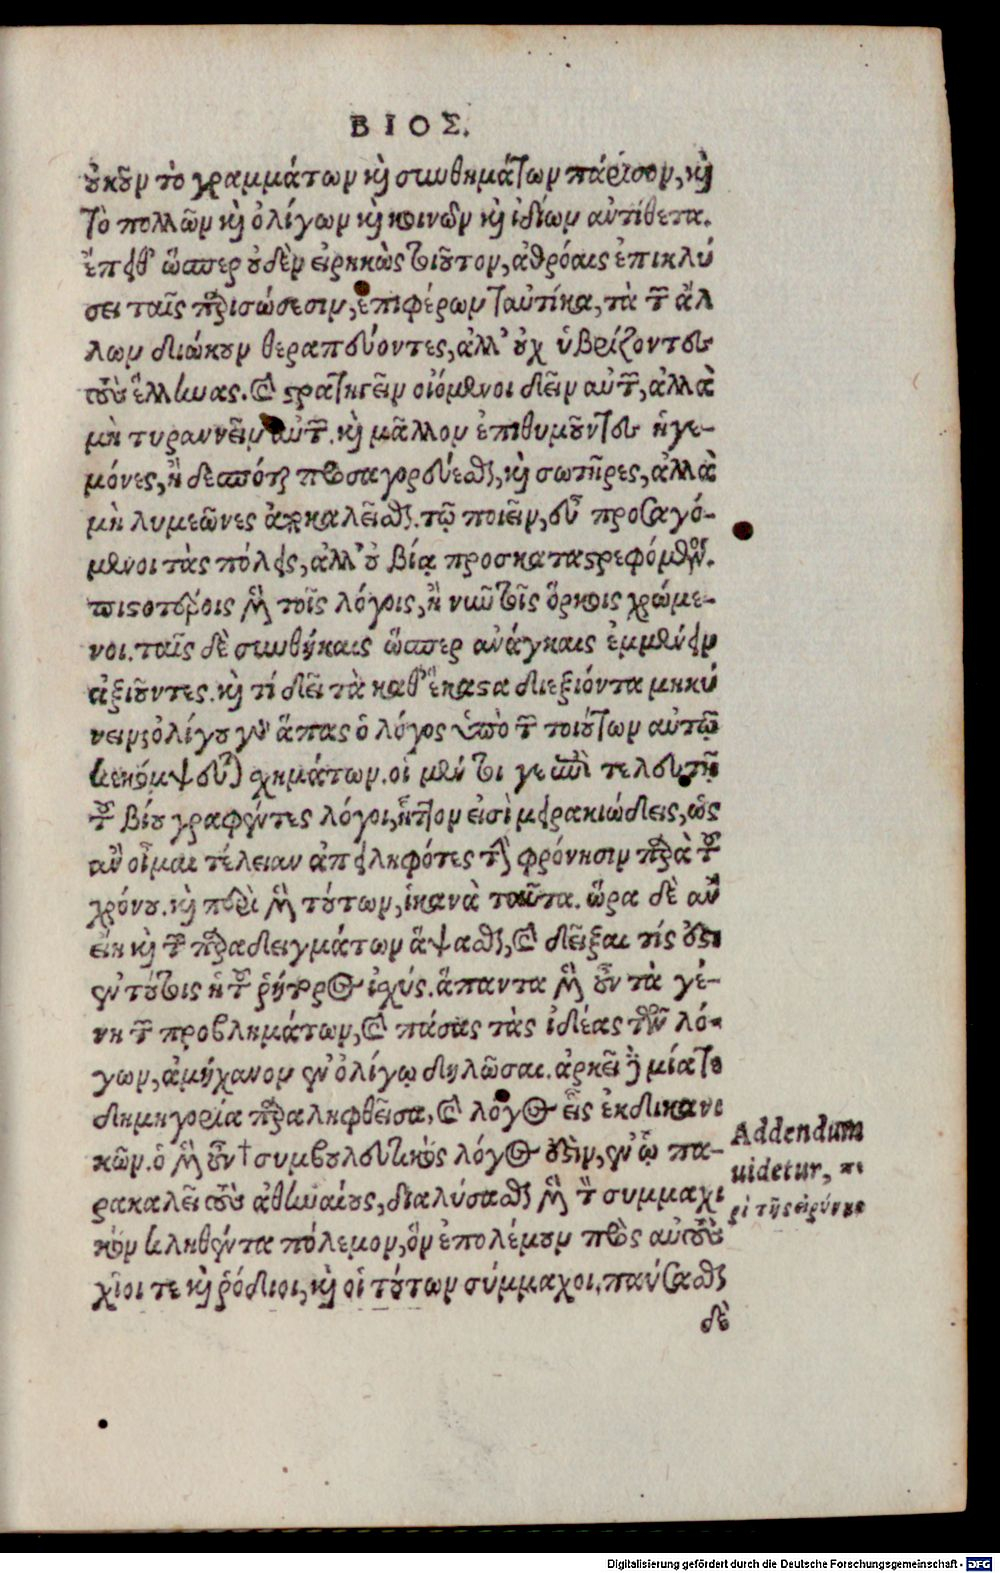 ΒΙΟΣ.
οὐκοῦν τὸ γραμμάτων καὶ συνθημάτων πάρισον, καὶ
τὸ πολλῶν καὶ ὀλίγων καὶ κοινῶν καὶ ἰδίων ἀντίθετα.
ἔπειθ' ὥσπερ οὐδὲν εἰρηκὼς τοιοῦτον, ἀθρόαις ἐπικλύ
σει ταῖς παρισώσεσιν, ἐπιφέρων ταυτίκα, τὰ τῶν ἄλ
λων διώκουν θεραπεύοντες, ἀλλ' οὐχ ὑβρίζοντες
τοὺς ἕλληνας. καὶ στρατηγεῖν οἰόμενοι δεῖν αὐτῶν, ἀλλὰ
μὴ τυραννεῖν αὐτῶν. καὶ μᾶλλον ἐπιθυμοῦντες ἡγε-
μόνες, ἢ δεσπόται προσαγορεύεσθαι, καὶ σωτῆρες, ἀλλὰ
μὴ λυμεῶνες ἀποκαλεῖσθαι. τῷ ποιεῖν, εὖ προσαγό-
μενοι τὰς πόλεις, ἀλλ' οὐ βίᾳ προσκαταστρεφόμενοι.
πιστοτέροις μὲν τοῖς λόγοις, ἢ νῦν τοῖς ὅρκοις χρώμε-
νοι. ταῖς δὲ συνθήκαις ὥσπερ ἀνάγκαις ἐμμένειν
ἀξιοῦντες. καὶ τί δεῖ τὰ καθ' ἕκαστα διεξιόντα μηκύ
νειν; ὀλίγου γὰρ ἅπας ὁ λόγος ὑπὸ τῶν τοιούτων αὐτῷ
κεκόμψευται σχημάτων. οἱ μέντοι γε ἐπὶ τελευτῇ
τοῦ βίου γραφέντες λόγοι, ἧττον εἰσὶ μειρακιώδεις, ὡς
ἂν οἶμαι τέλειαν ἀπειληφότες τὴν φρόνησιν παρὰ τοῦ
χρόνου. καὶ περὶ μὲν τούτων, ἱκανὰ ταῦτα. ὥρα δὲ ἂν
εἴη καὶ τῶν παραδειγμάτων ἅψασθαι, καὶ δεῖξαι τίς ἐστι
ἐν τούτοις ἡ τοῦ ῥήτορος ἰσχύς. ἅπαντα μὲν οὖν τὰ γέ-
νη τῶν προβλημάτων, καὶ πάσας τὰς ἰδέας τῶν λό-
γων, ἀμήχανον ἐν ὀλίγῳ δηλῶσαι. ἀρκεῖ δὲ μία τε
δημηγορία παραληφθεῖσα, καὶ λόγος εἷς ἐκ δικανι
κῶν. ὁ μὲν οὖν † συμβουλευτικός λόγος ἐστιν, ἐν ᾧ πα-
ρακαλεῖ τοὺς ἀθηναίους, διαλύσασθαι μὲν τὸν συμμαχι
κὸν κληθέντα πόλεμον, ὃν ἐπολέμουν πρὸς αὐτοὺς
χῖοι τε καὶ ῥόδιοι, καὶ οἱ τούτων σύμμαχοι. παύσασθαι
δὲ
Addendum
uidetur, πε
ρὶ τῆς εἰρήνης
Digitalisierung gefördert durch die Deutsche Forschungsgemeinschaft - DFG